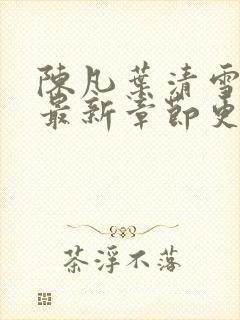 陳凡葉清雪
最新章節更
茶浮不落